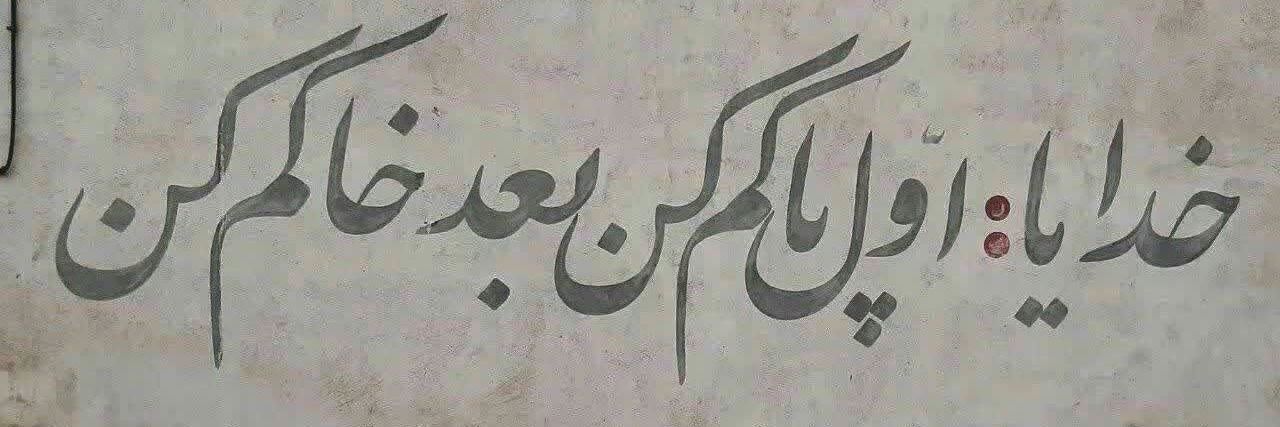 خدایا: اوّل پاکم کن بعد خاکم کن